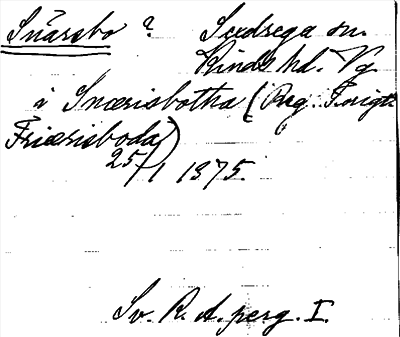 Snärsbo ? Sexdrega sn.
Kinds hd. Vg
i Snærisbotha (Reg. Tvigt:
Friærisboda)
25/1 1375.
Sv. R. A. perg. I.